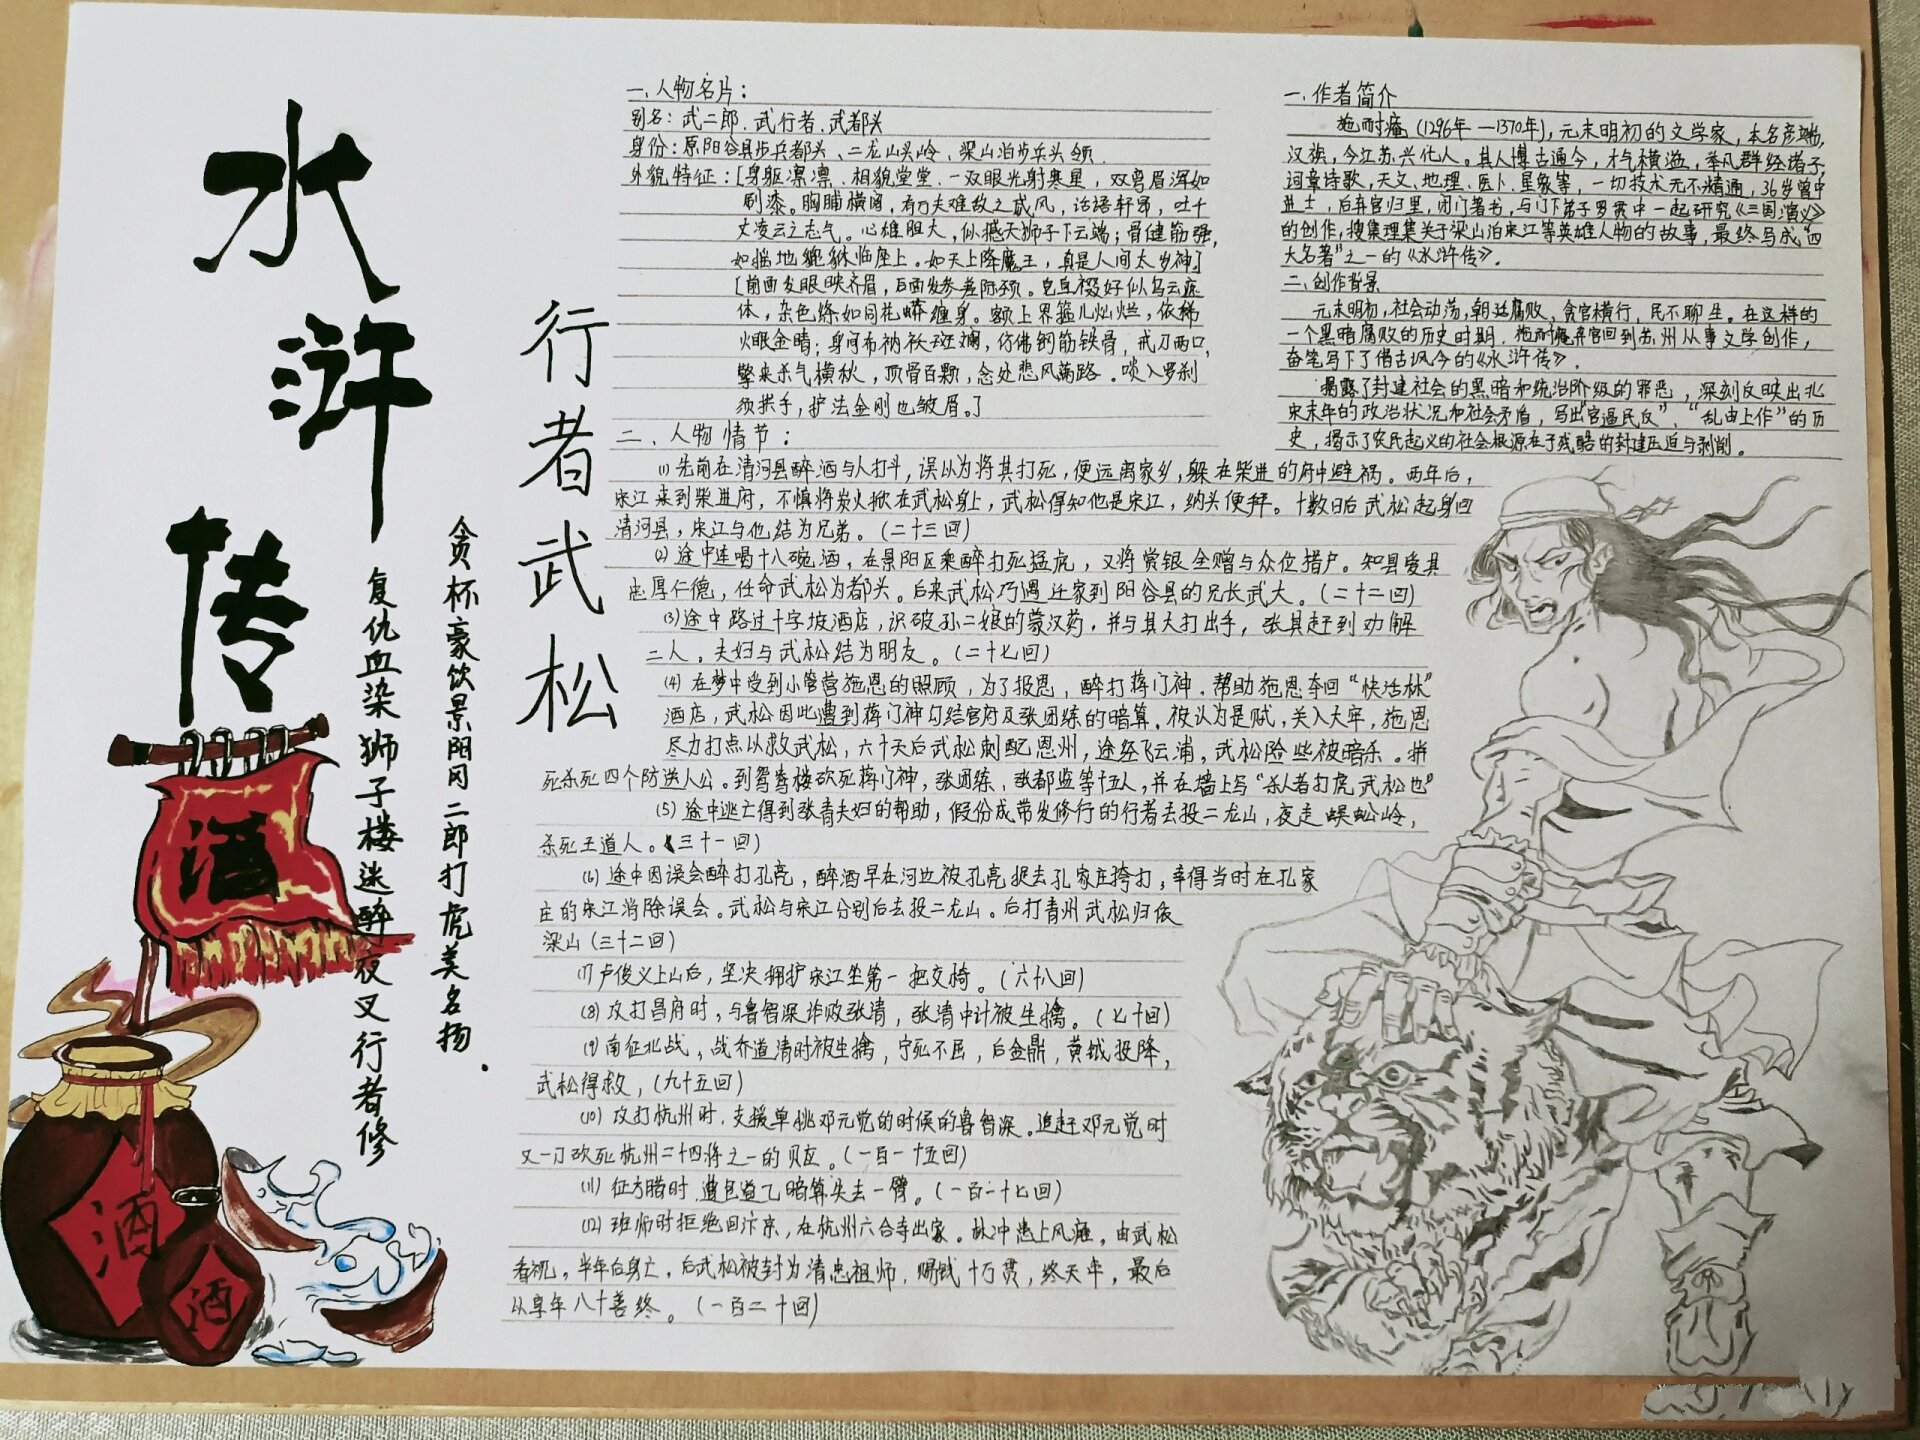 水浒传
行者武松
贪杯豪饮景阳冈二郎打虎美名扬.
复仇血染狮子楼迷醉夜叉行者修
酒
酒
酒
一、人物名片：
别名：武二郎、武行者、武都头
身份：原阳谷县步兵都头、二龙山头岭、梁山泊步兵头领.
外貌特征：[身躯凛凛、相貌堂堂、一双眼光射寒星，双弯眉浑如
刷漆。胸脯横阔，有万夫难敌之威风，话语轩昂，吐千
丈凌云之志气。心雄胆大，似撼天狮子下云端；骨健筋强，
如摇地貔貅临座上。如天上降魔王，真是人间太岁神]
[前面发眼映齐眉，后面发参差际颈。皂直裰好似乌云遮
体，杂色绦如同花蟒缠身。额上界箍儿灿烂，依稀
火眼金睛；身间布衲袄斑斓，仿佛钢筋铁骨，戒刀两口，
擎来杀气横秋，顶骨百颗，念处悲风满路。啖人罗刹
须拱手，护法金刚也皱眉。]
二、人物情节：
(1)先前在清河县醉酒与人打斗，误以为将其打死，便远离家乡，躲在柴进的府中避祸。两年后，
宋江来到柴进府，不慎将炭火掀在武松身上，武松得知他是宋江，纳头便拜。十数日后武松起身回
清河县，宋江与他结为兄弟。(二十三回)
(2)途中连喝十八碗酒，在景阳区乘醉打死猛虎，又将赏银全赠与众位猎户。知县爱其
忠厚仁德，任命武松为都头。后来武松巧遇迁家到阳谷县的兄长武大。(二十二回)
(3)途中路过十字坡酒店，识破孙二娘的蒙汉药，并与其大打出手，张其赶到劝解
二人。夫妇与武松结为朋友。(二十七回)
(4)在梦中受到小管营施恩的照顾，为了报恩，醉打蒋门神.帮助施恩夺回“快活林”
酒店，武松因此遭到蒋门神勾结官府及张团练的暗算.被认为是贼，关入大牢，施恩
尽力打点以救武松，六十天后武松刺配恩州，途经飞云浦，武松险些被暗杀。拼
死杀死四个防送人公。到鸳鸯楼砍死蒋门神，张团练，张都监等十五人，并在墙上写“杀人者打虎武松也”
(5)途中逃亡得到张青夫妇的帮助，假份成带发修行的行者去投二龙山，夜走蜈蚣岭，
杀死王道人。(三十一回)
(6)途中因误会醉打孔亮，醉酒早在河边被孔亮捉去孔家庄挎打，幸得当时在孔家
庄的宋江消除误会。武松与宋江分别后去投二龙山。后打青州武松归依
梁山(三十二回)
(7)卢俊义上山后，坚决拥护宋江坐第一把交椅。(六十八回)
(8)攻打昌府时，与鲁智深诈败张清，张清中计被生擒。(七十回)
(9)南征北战，战乔道清时被生擒，宁死不屈，后金鼎，黄钺投降，
武松得救，(九十五回)
(10)攻打杭州时，支援单挑邓元觉的时候的鲁智深。追赶邓元觉时
又一刀砍死杭州二十四将之一的贝应。(一百一十五回)
(11)征方腊时，遭包道乙暗算失去一臂。(一百一十七回)
(12)班师时拒绝回汴京，在杭州六合寺出家。林冲患上风瘫，由武松
看视，半年后身亡，后武松被封为清忠祖师，赐钱十万贯，终天年，最后
以享年八十善终。(一百二十回)
一.作者简介
施耐庵(1296年—1370年)，元末明初的文学家，本名彦端，
汉族，今江苏兴化人。其人博古通今，才气横溢，举凡群经诸子，
词章诗歌，天文、地理、医卜、星象等，一切技术无不精通，36岁曾中
进士，后弃官归里，闭门著书，与门下弟子罗贯中一起研究《三国演义》
的创作，搜集理集关于梁山泊宋江等英雄人物的故事，最终写成“四
大名著”之一的《水浒传》.
二.创作背景
元末明初，社会动荡，朝廷腐败，贪官横行，民不聊生。在这样的
一个黑暗腐败的历史时期，施耐庵弃官回到苏州从事文学创作，
奋笔写下了借古讽今的《水浒传》.
揭露了封建社会的黑暗和统治阶级的罪恶，深刻反映出北
宋末年的政治状况和社会矛盾，写出“官逼民反”、“乱由上作”的历
史，揭示了农民起义的社会根源在于残酷的封建压迫与剥削。